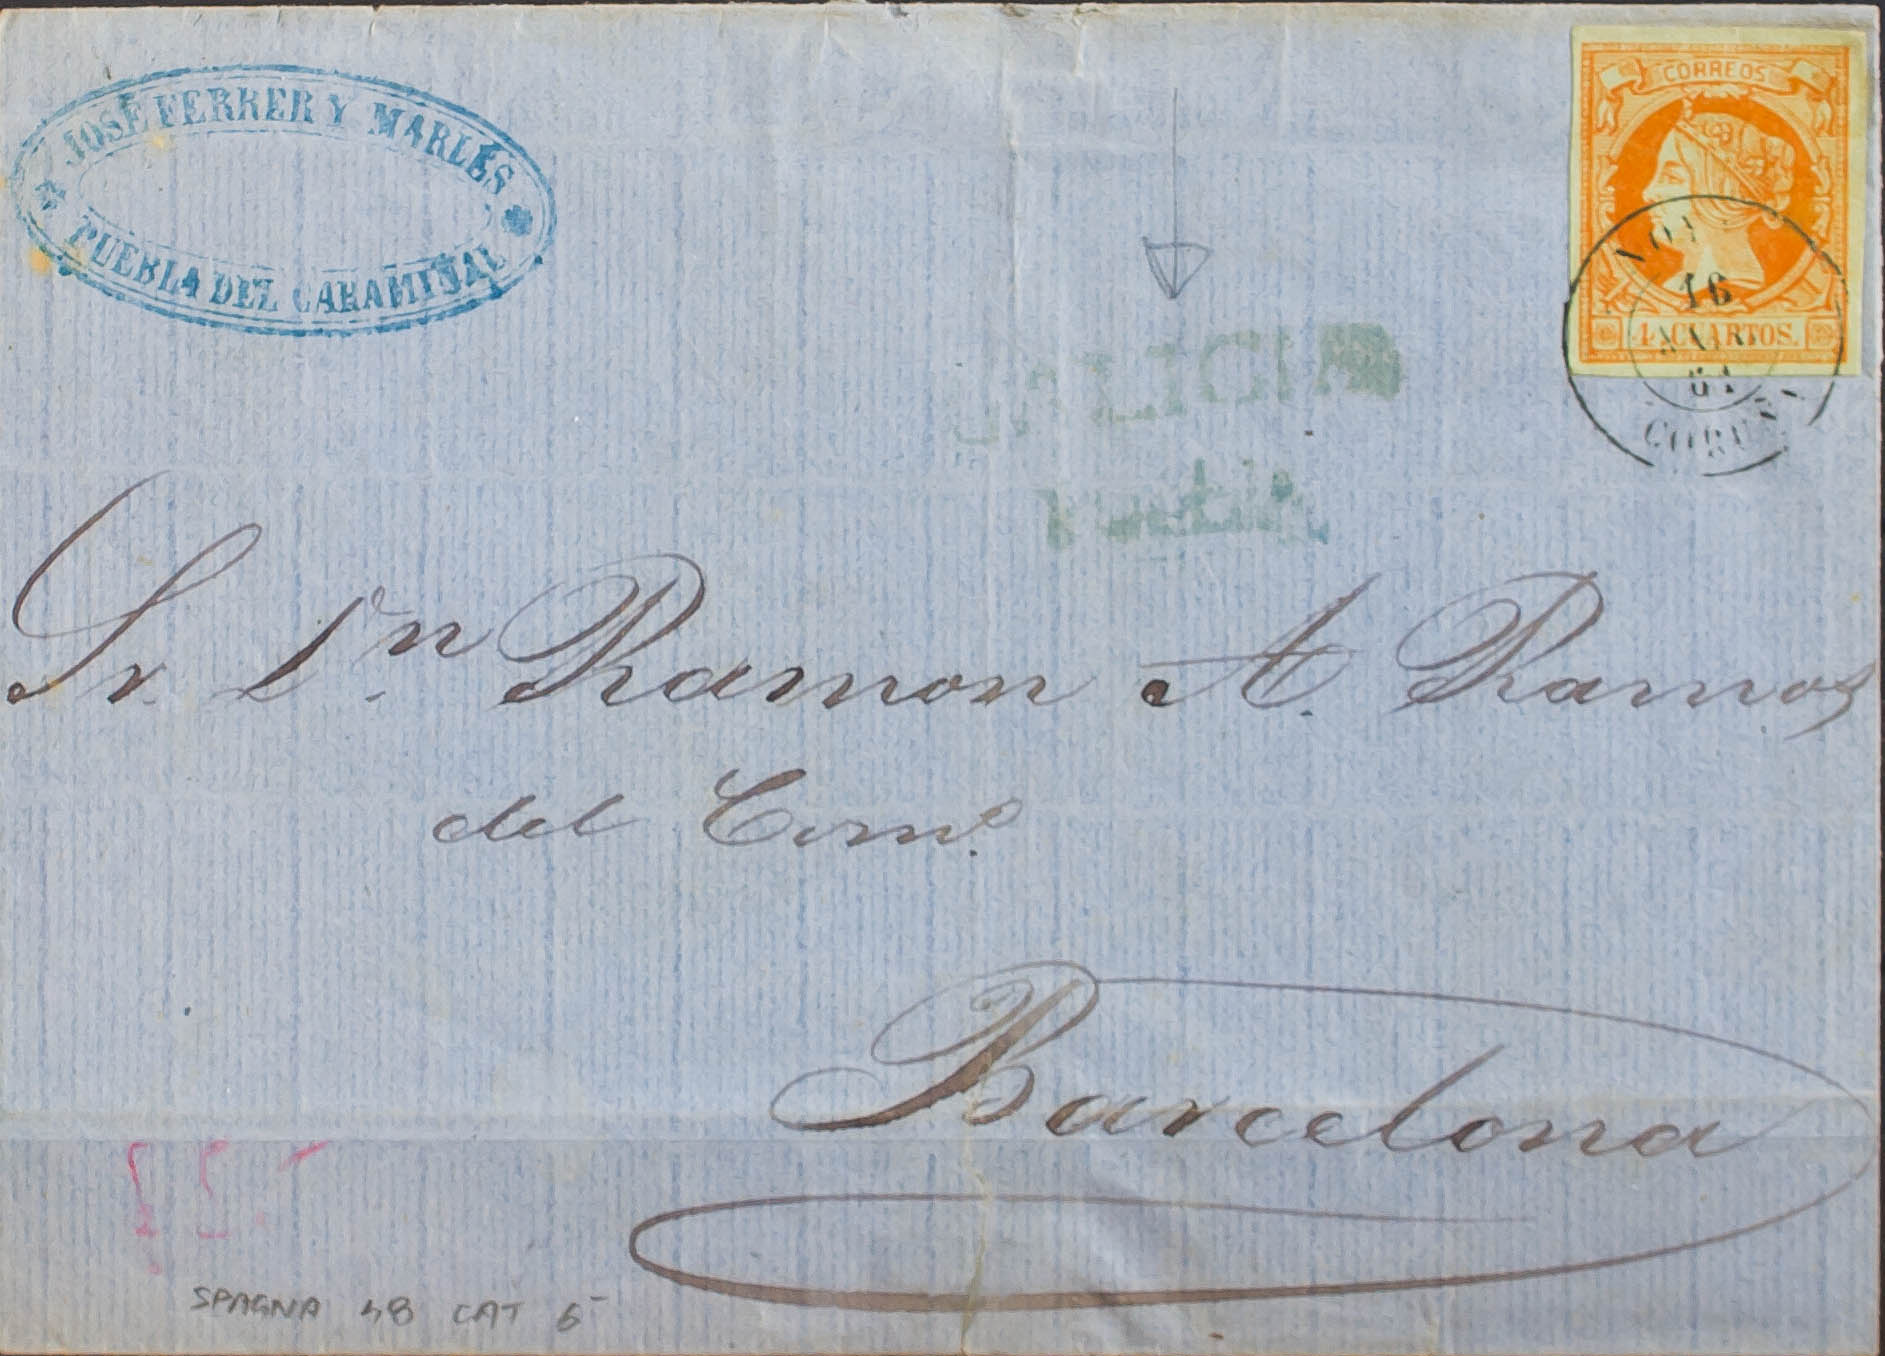 JOSÉ FERRER Y MARLÉS
PUEBLA DEL CARAMIÑAL
CORREOS
4 CUARTOS.
NOYA
16
MAR
61
CORUÑA
GALICIA
Sr. Dn Ramon A. Ramos
del Como.
Barcelona
SPAGNA 48 CAT 6-